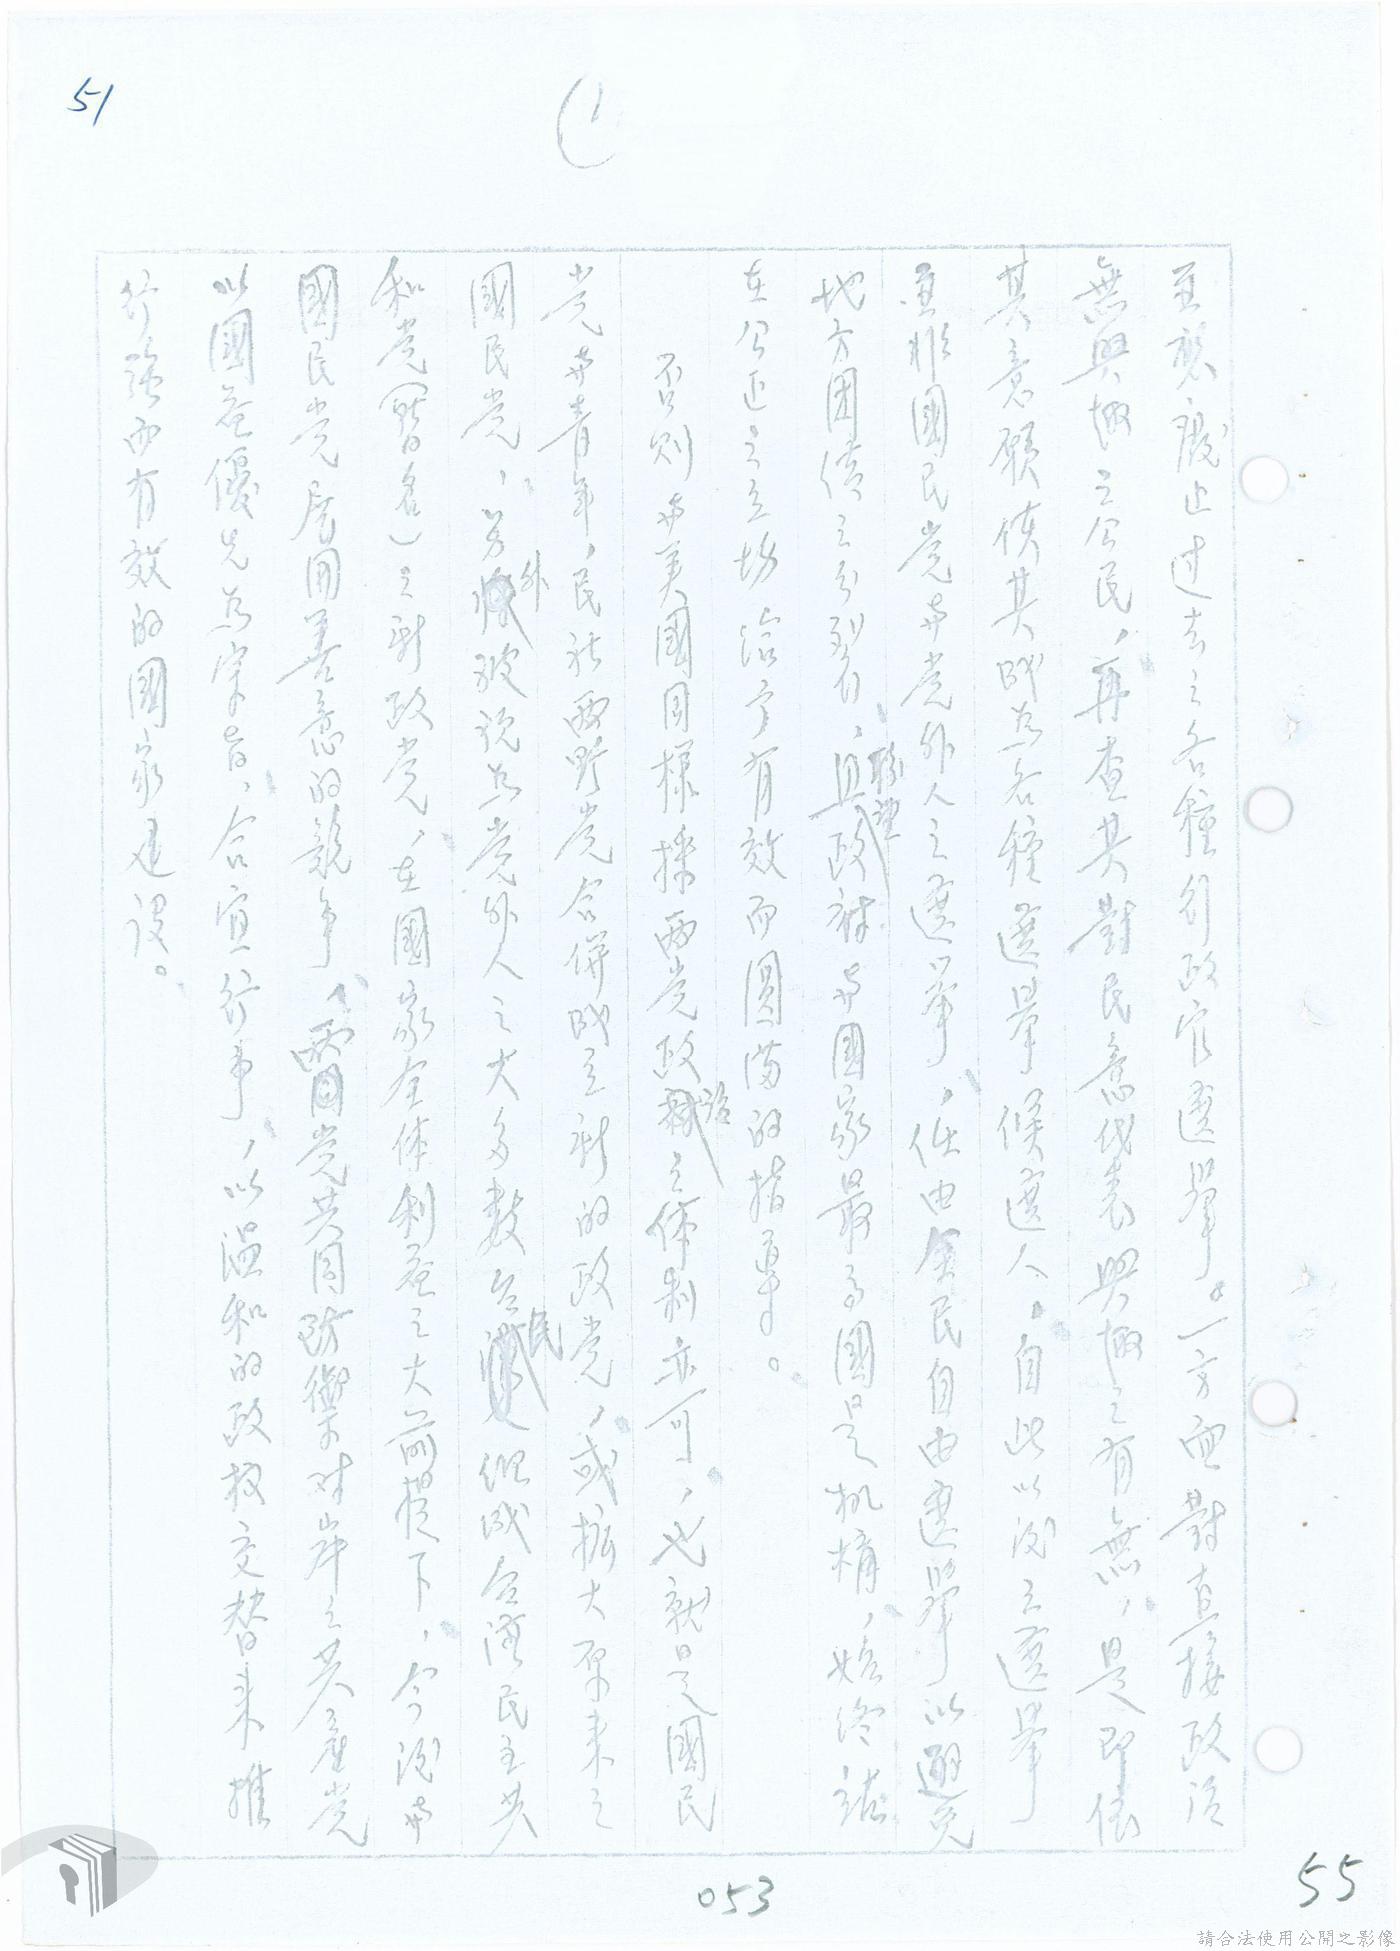 51
至裂痕止过去之各種行政官選舉。一方面對直接政治
無興趣之公民，再查其對民意代表興趣之有無，是即依
其意願使其成為各種選舉候選人，自此以後之選舉
並非國民党与党外人之選舉，任由全民自由選舉以避免
地方團結之分裂，且政府与國家最高國是机構，始終站
聯望
在公正之立場給予有效而圓満的指導。
否則与美國同樣採兩党政治之体制亦可，也就是國民
党与青年，民社兩野党合併成立新的政党，或拡大原来之
國民党，另外被説為党外人之大多數台民組成台湾民主共
和党（暫名）之新政党，在國家全体利益之大前提下，今後与
國民党展開善意的競争，兩国党共同防禦对岸之共産党
以國益優先為宗旨，合宜行事，以温和的政权交替来推
行強而有效的國家建设。
053
55
請合法使用公開之影像